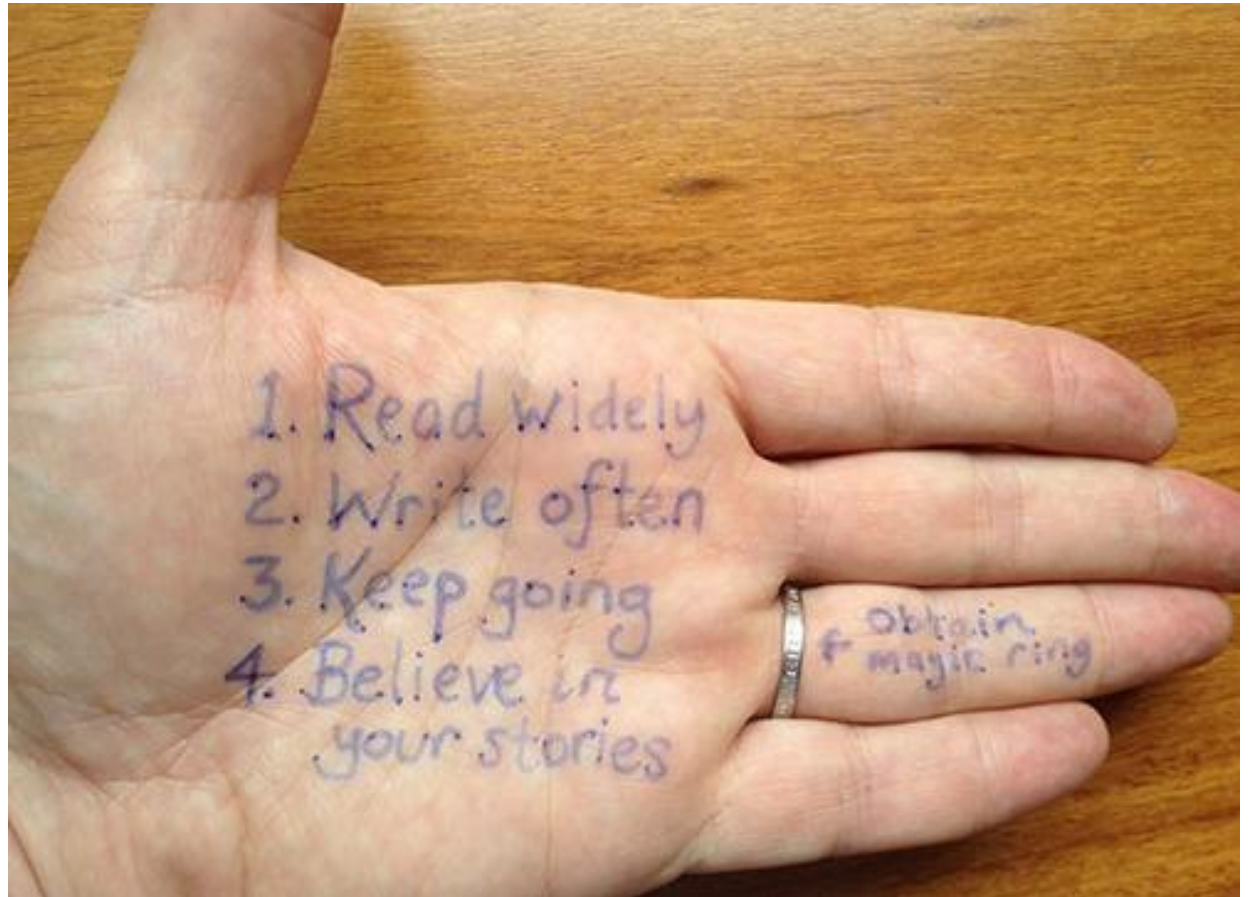 1. Read widely
2. Write often
3. Keep going
4. Believe in
your stories
obtain
magic ring